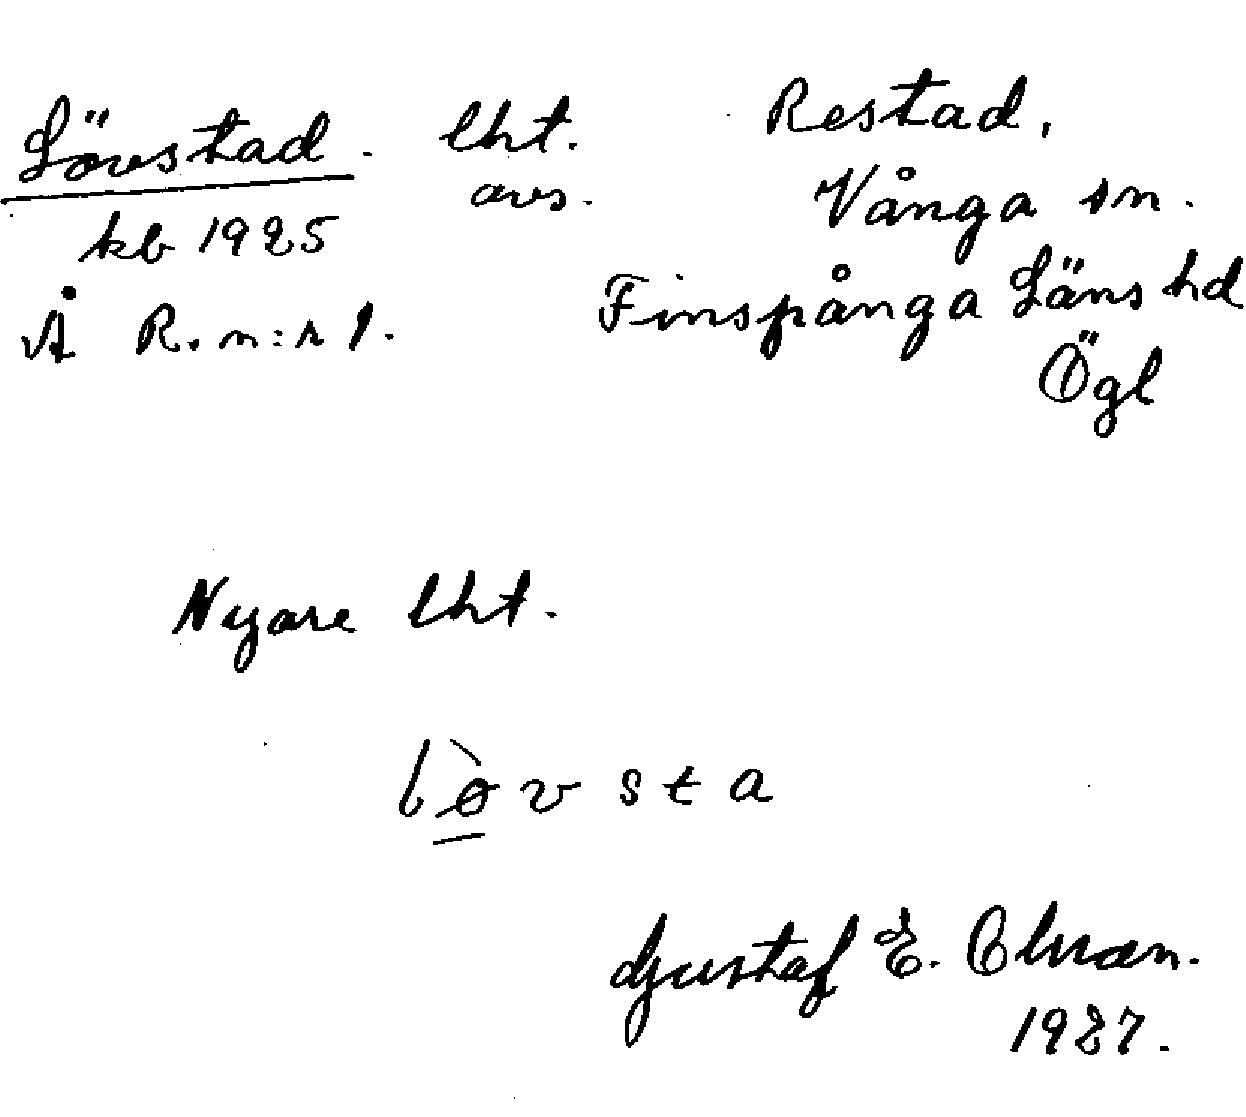 Lövstad. lht. Restad,
avs. Vånga sn.
kb 1925
Finspånga Läns hd
Å R. n:r 1.
Ögl
Nyare lht.
lòv sta
Gustaf E.
1927.